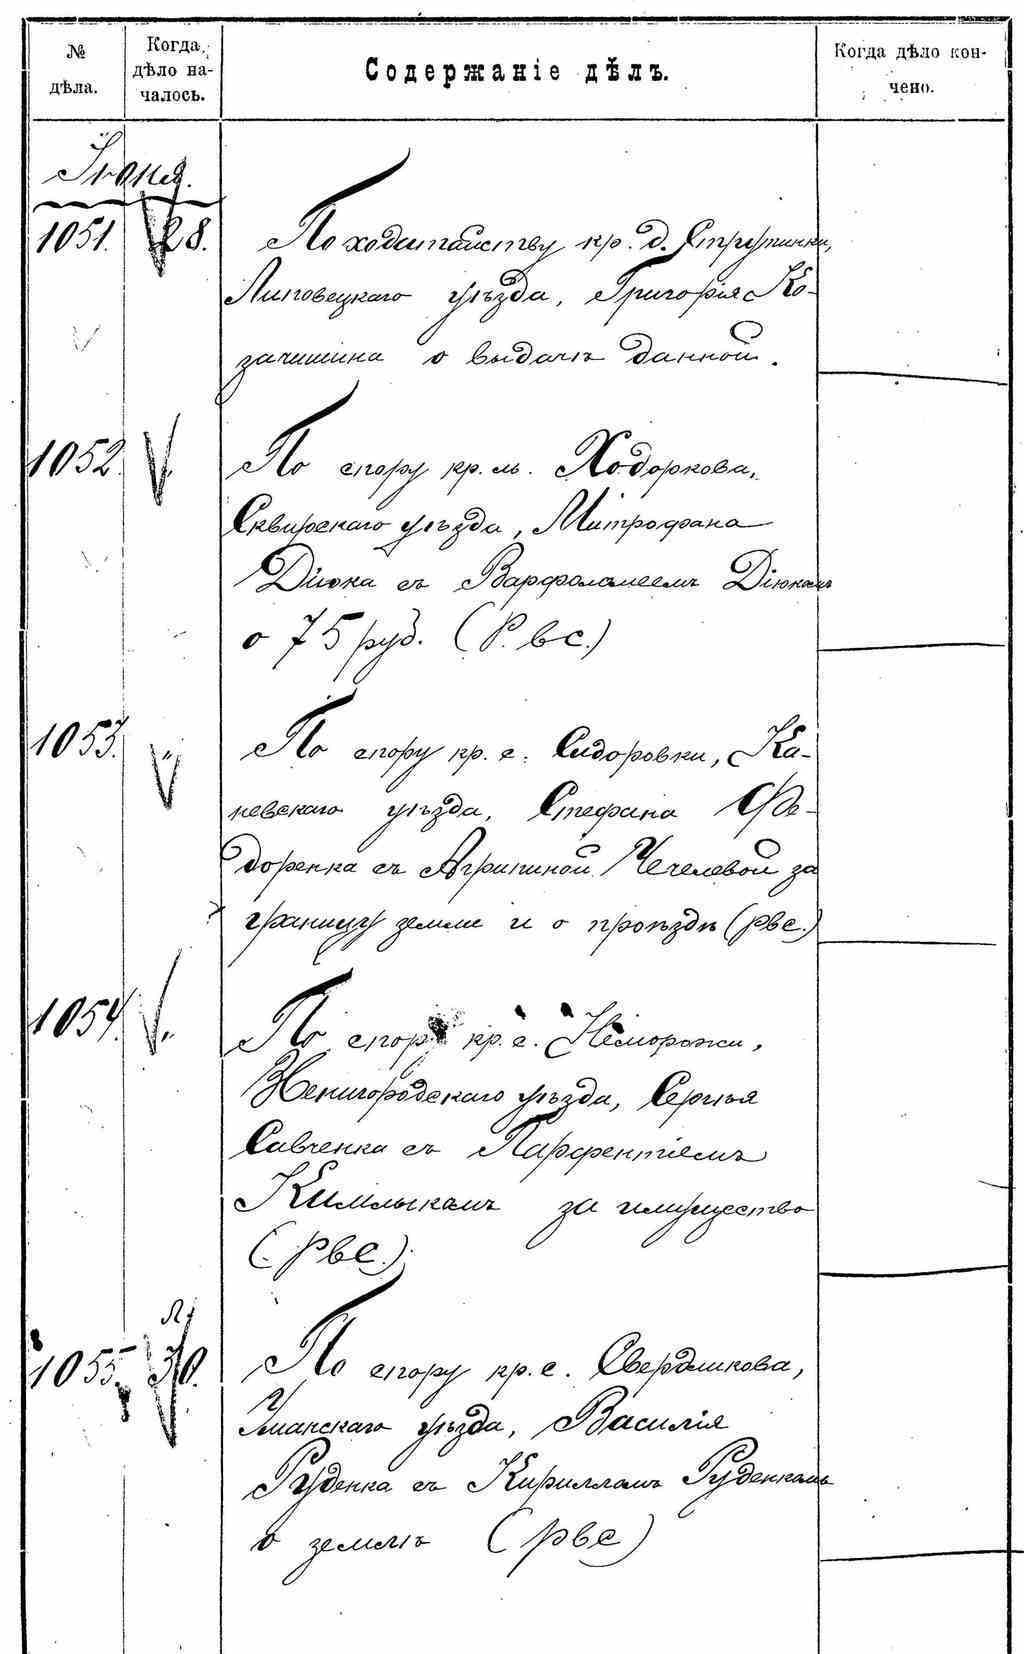 № дѣла.
Когда дѣло началось.
Содержаніе дѣлъ.
Когда дѣло кончено.
Іюня.
1051. 28. По ходатайству кр. д. Струтинки,
Липовецкаго уѣзда, Григорія Ко-
зачишина о выдачѣ данной.
1052. " По спору кр. м. Ходоркова,
Сквирскаго уѣзда, Митрофана
Діюка съ Варфоломеемъ Діюкомъ
о 75 руб. (Р. вс.)
1053. " По спору кр. с. Сидоровки, Ка-
невскаго уѣзда, Стефана Фе-
доренка съ Агрипиной Чечелевой за
границу земли и о проѣздѣ (рвс.)
1054. " По спору кр. с. Неморожи,
Звенигородскаго уѣзда, Сергѣя
Савченка съ Парфентіемъ
за имущество
(рвс.)
1055. 30. По спору кр. с. Свердликова,
Уманскаго уѣзда, Василія
Руденка съ Кирилломъ Руденкомъ
о землѣ (рвс)